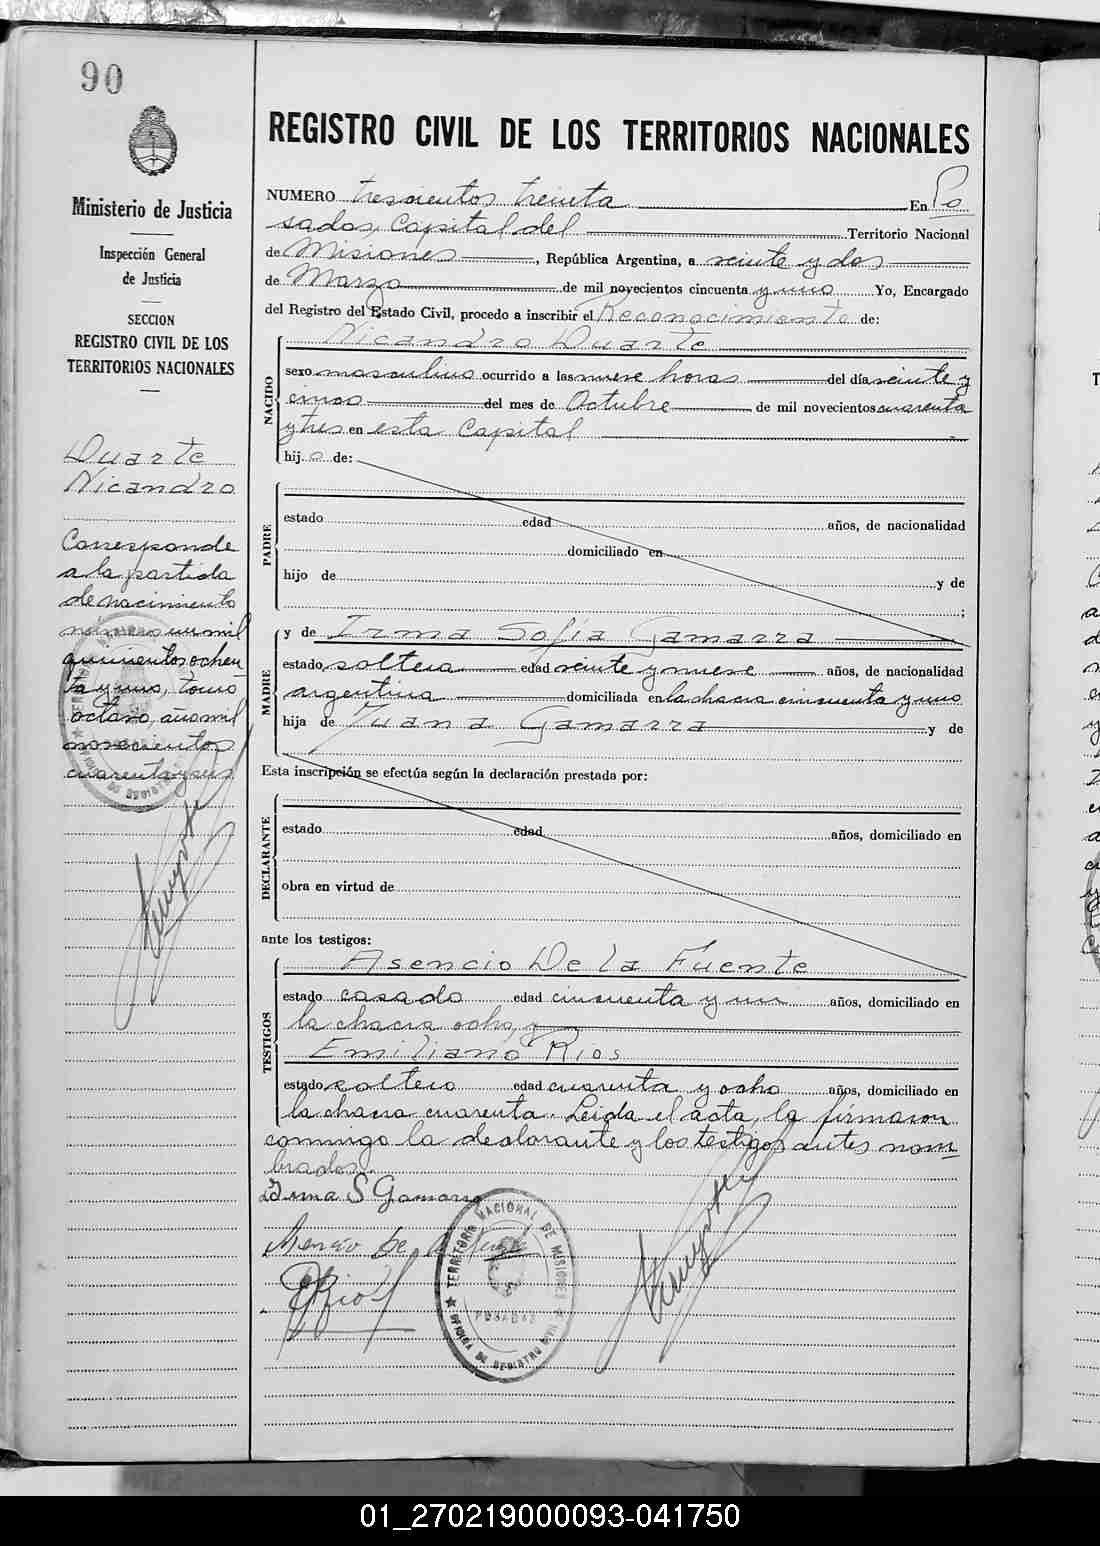 90
Ministerio de Justicia
Inspección General
de Justicia
SECCION
REGISTRO CIVIL DE LOS
TERRITORIOS NACIONALES
Duarte
Nicandro
Corresponde
a la partida
de nacimiento
número un mil
quinientos ochen
ta y uno, tomo
octavo, año mil
novecientos
cuarenta y
REGISTRO CIVIL DE LOS TERRITORIOS NACIONALES
NUMERO trescientos treinta En Po
sadas, Capital del Territorio Nacional
de Misiones, República Argentina, a veinte y dos
de Marzo de mil novecientos cincuenta y uno Yo, Encargado
del Registro del Estado Civil, procedo a inscribir el Reconocimiento de:
Nicandro Duarte
NACIDO
sexo masculino ocurrido a las nueve horas del día veinte y
cinco del mes de Octubre de mil novecientos cuarenta
y tres en esta Capital
hij o de:
PADRE
estado edad años, de nacionalidad
domiciliado en
hijo de y de
;
y de Irma Sofía Gamarra
MADRE
estado soltera edad veinte y nueve años, de nacionalidad
argentina domiciliada en la chacra cincuenta y uno
hija de Juana Gamarra y de
Esta inscripción se efectúa según la declaración prestada por:
DECLARANTE
estado edad años, domiciliado en
obra en virtud de
ante los testigos:
TESTIGOS
Asencio De la Fuente
estado casado edad cincuenta y un años, domiciliado en
la chacra ocho, y
Emiliano Rios
estado soltero edad cuarenta y ocho años, domiciliado en
la chacra cuarenta. Leída el acta, la firmaron
conmigo la declarante y los testigos antes nom
brados.
Irma S Gamarra
Asencio De la Fuente
ERios
TERRITORIO NACIONAL DE MISIONES
POSADAS
OFICINA DE REGISTRO CIVIL
01_270219000093-041750